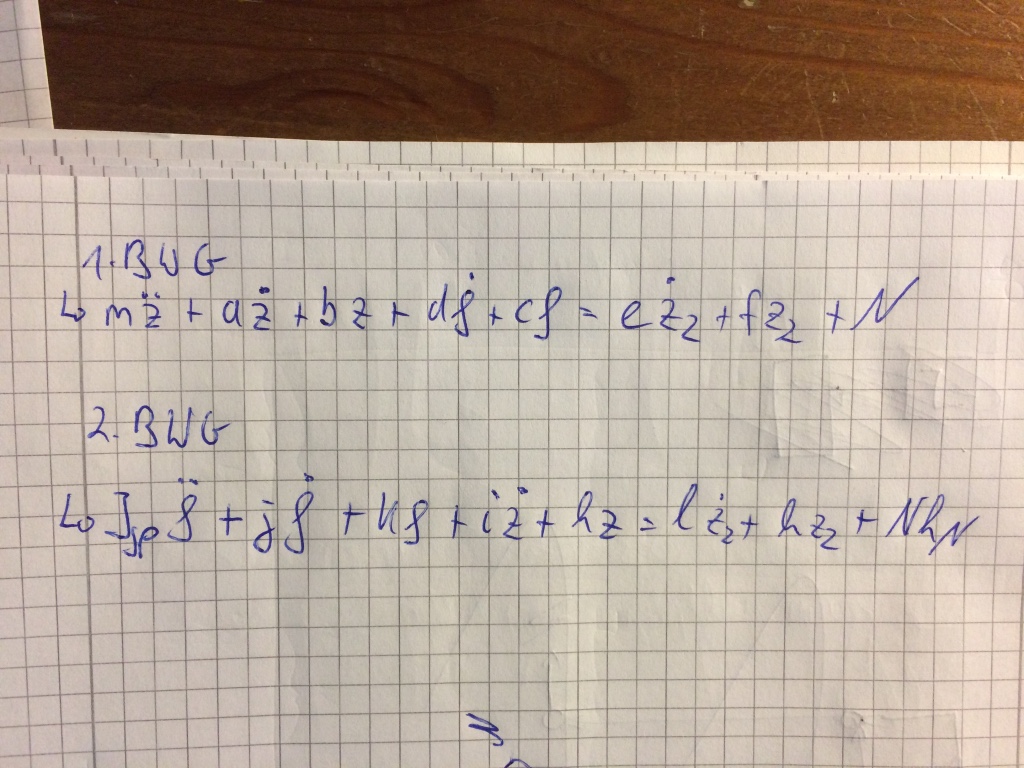 1. BWG
↳ mz̈ + aż + bz + dφ̇ + cφ = eż₂ + fz₂ + N
2. BWG
↳ J φ̈ + jφ̇ + kφ + iż + hz = lż₂ + hz₂ + Nh_N
⇒